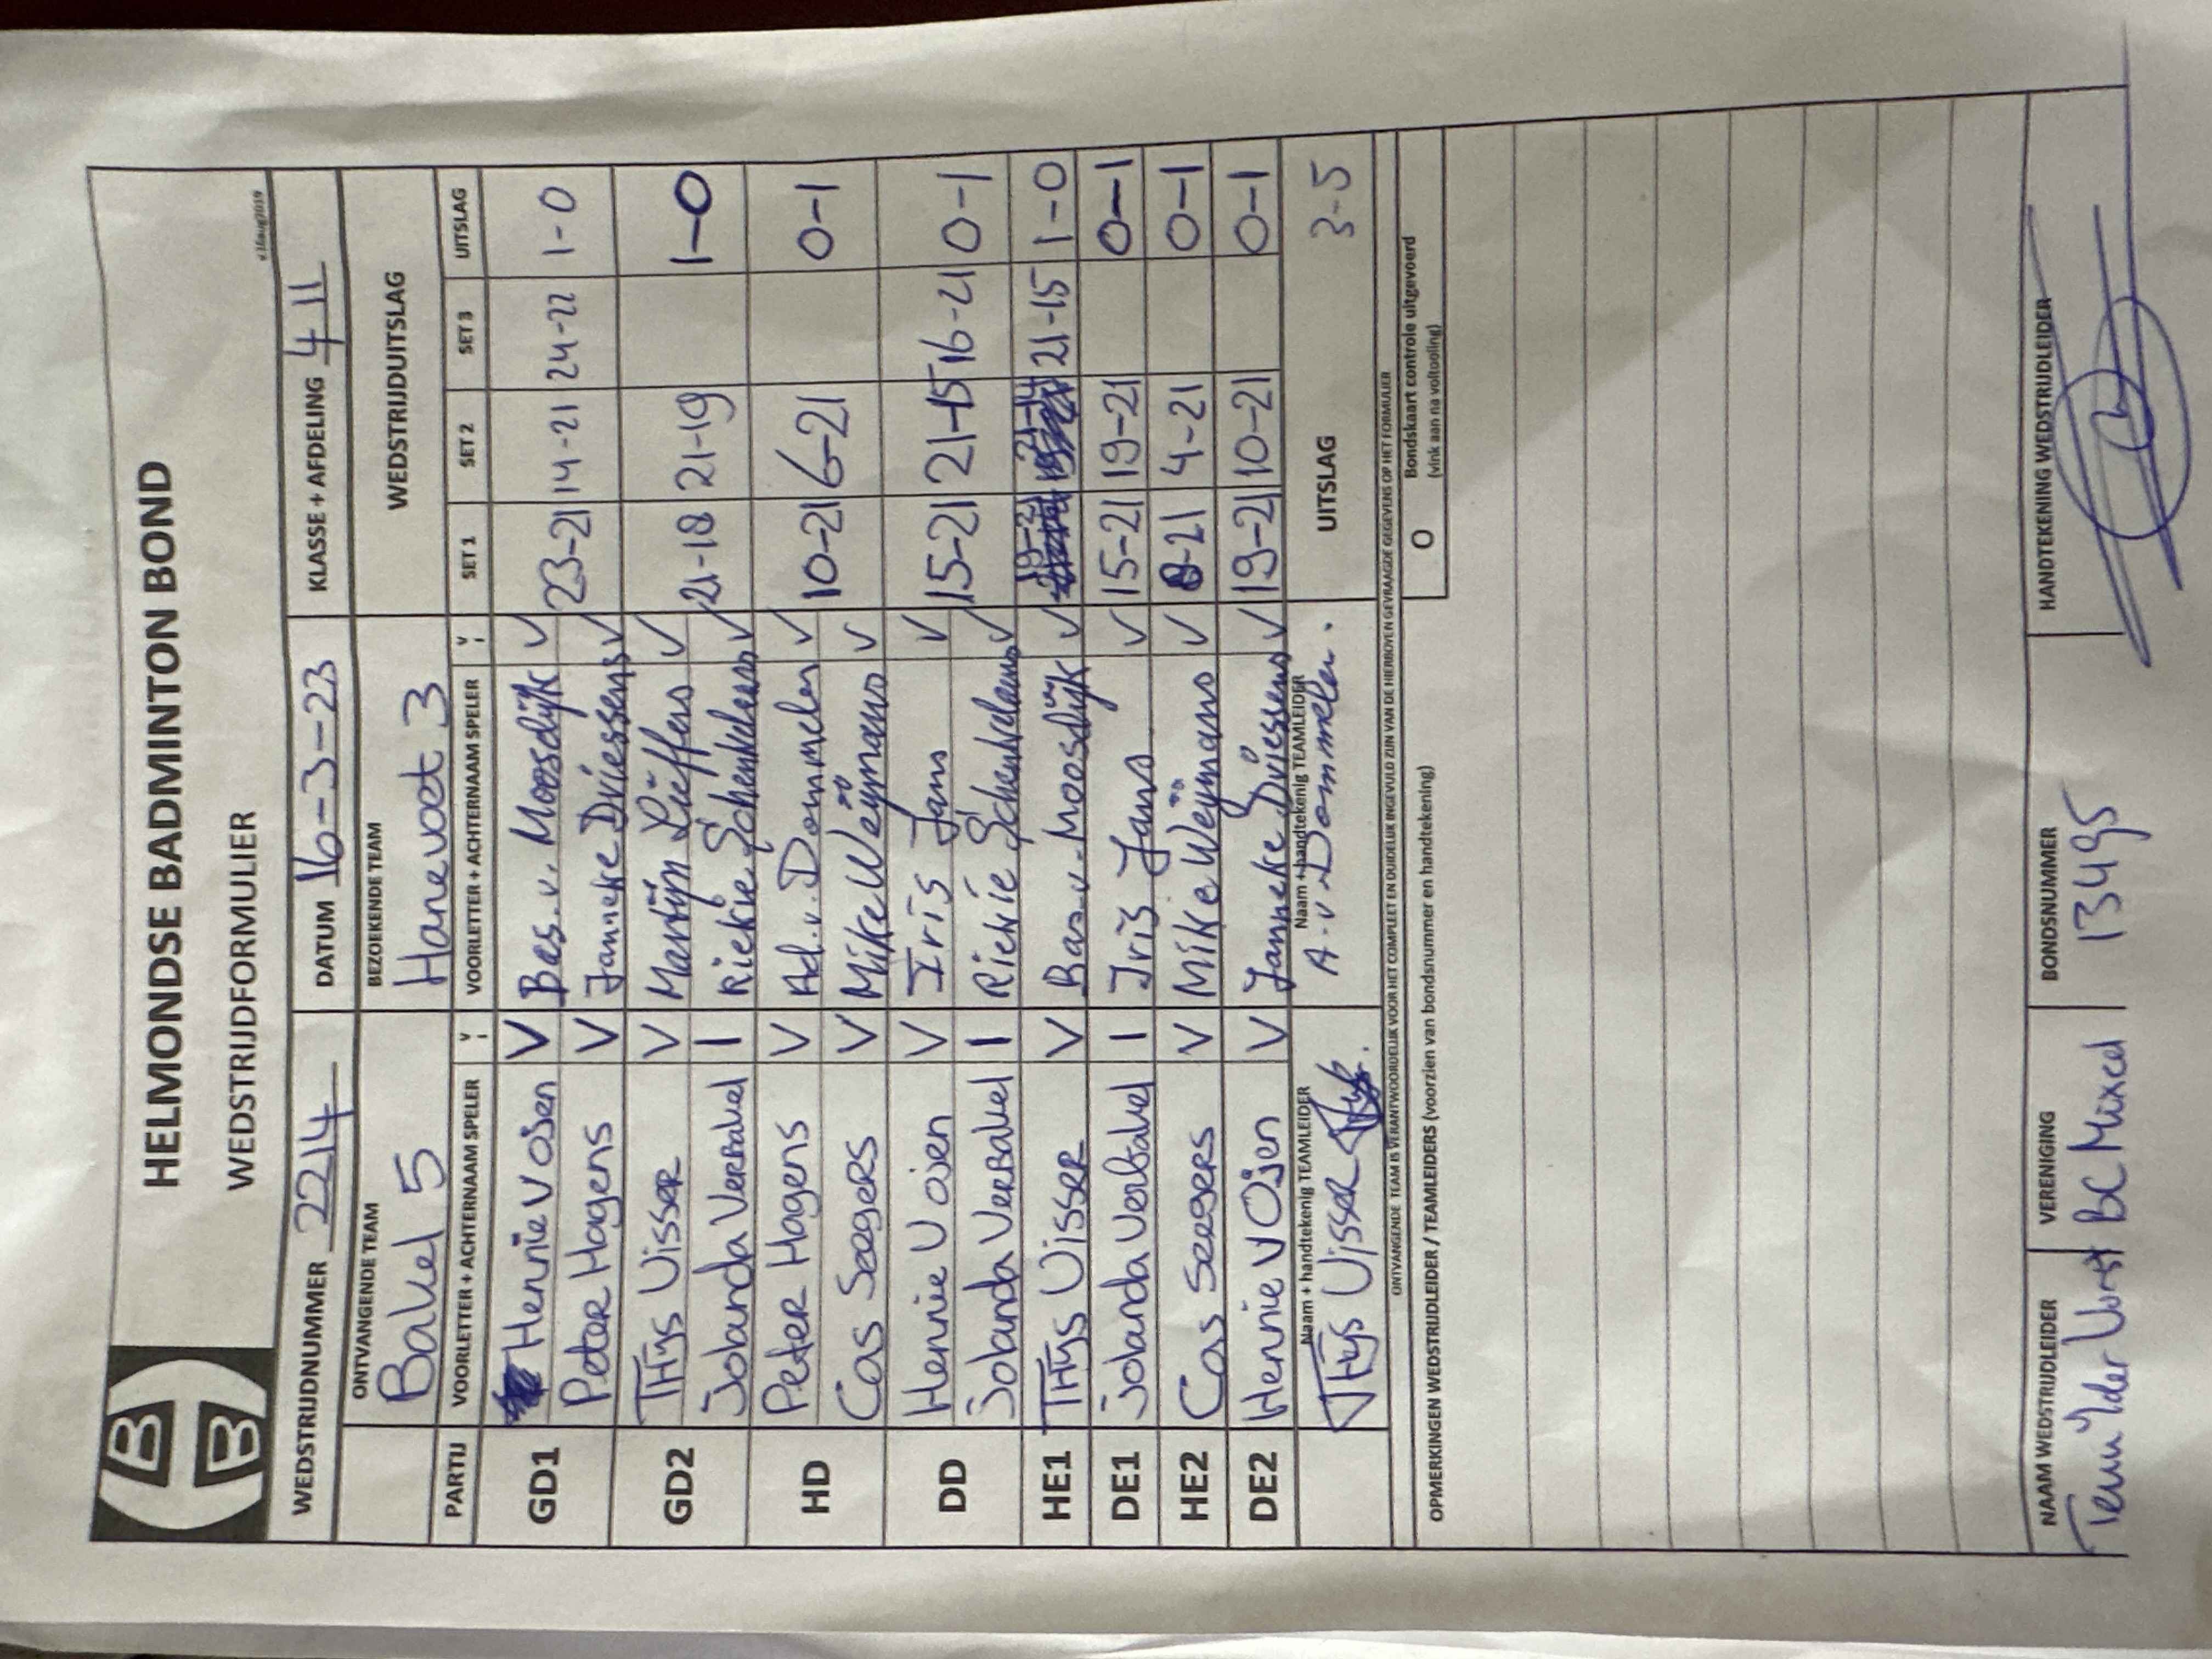 HELMONDSE BADMINTON BOND
WEDSTRIJDFORMULIER
WEDSTRIJDNUMMER 2214 DATUM 16-3-23 KLASSE + AFDELING 4 11
ONTVANGENDE TEAM BEZOEKENDE TEAM WEDSTRIJDUITSLAG
Bakel 5 Hanevoet 3
PARTIJ VOORLETTER + ACHTERNAAM SPELER VOORLETTER + ACHTERNAAM SPELER SET 1 SET 2 SET 3 UITSLAG
GD1 Hennie V Osen V Bas v. Moosdijk V 23-21 14-21 24-22 1-0
Peter Hagens V Janneke Driessens V
GD2 THijs Visser V Martijn Lieffers V 21-18 21-19 1-0
Jolanda Verbakel I Riekie Schenkelaars V
HD Peter Hagens V Ad. v. Dommelen V 10-21 6-21 0-1
Cas Seegers V Mike Weijmans V
DD Hennie V Osen V Iris Jans V 15-21 21-15 16-21 0-1
Jolanda Verbakel I Riekie Schenkelaars V
HE1 THijs Visser V Bas v. Moosdijk V 19-21 21-14 21-15 1-0
DE1 Jolanda Verbakel I Iris Jans V 15-21 19-21 0-1
HE2 Cas Seegers V Mike Weijmans V 8-21 4-21 0-1
DE2 Hennie V Osen V Janneke Driessens V 19-21 10-21 0-1
Naam + handtekenig TEAMLEIDER Naam + handtekenig TEAMLEIDER
THijs Visser A. v Dommelen. UITSLAG 3-5
ONTVANGENDE TEAM IS VERANTWOORDELIJK VOOR HET COMPLEET EN DUIDELIJK INGEVULD ZIJN VAN DE HIERBOVEN GEVRAAGDE GEGEVENS OP HET FORMULIER
O Bondskaart controle uitgevoerd
(vink aan na voltooiing)
OPMERKINGEN WEDSTRIJDLEIDER / TEAMLEIDERS (voorzien van bondsnummer en handtekening)
NAAM WEDSTRIJDLEIDER VERENIGING BONDSNUMMER HANDTEKENING WEDSTRIJDLEIDER
v/der Vorst BC Mixed 13495